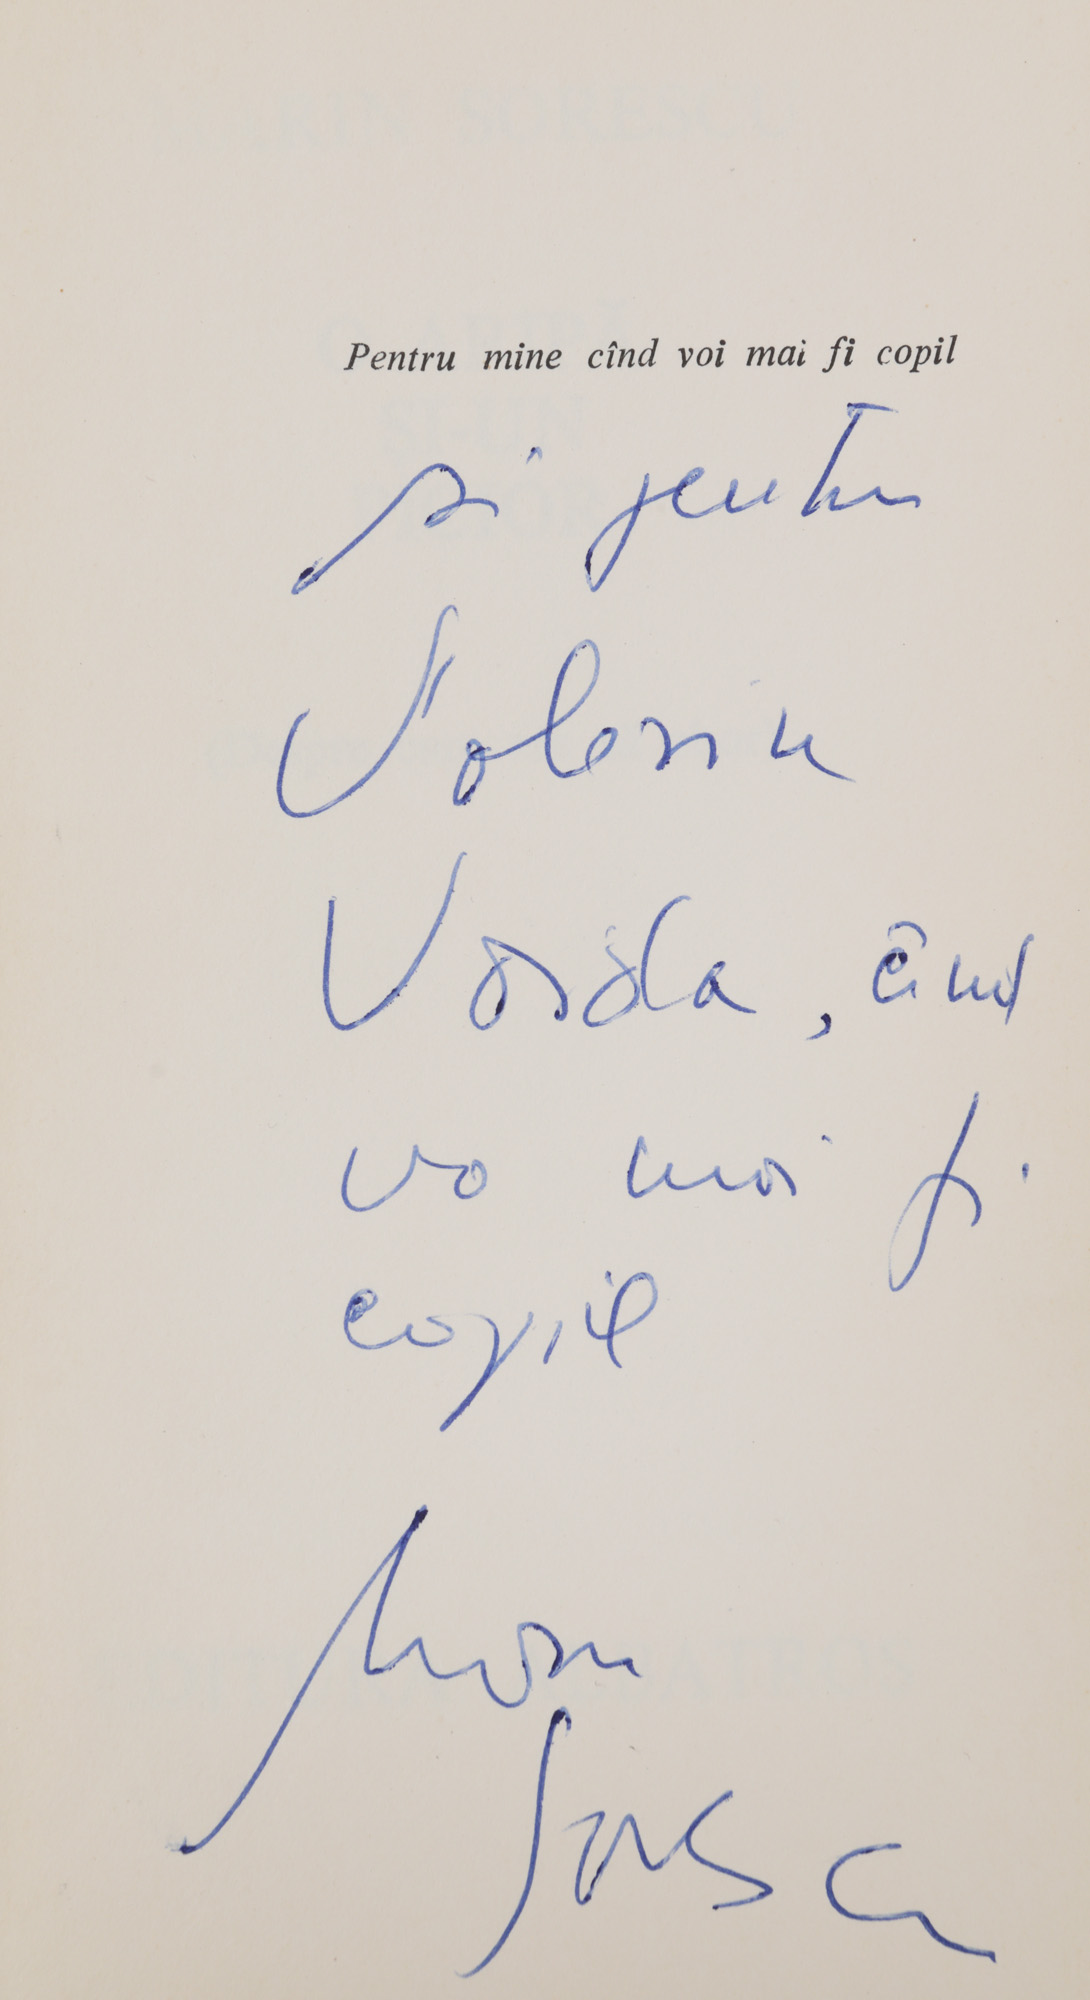 Pentru mine cînd voi mai fi copil
și pentru
Valeriu
Voida, cînd
va mai fi
copil
Marin
Sorescu